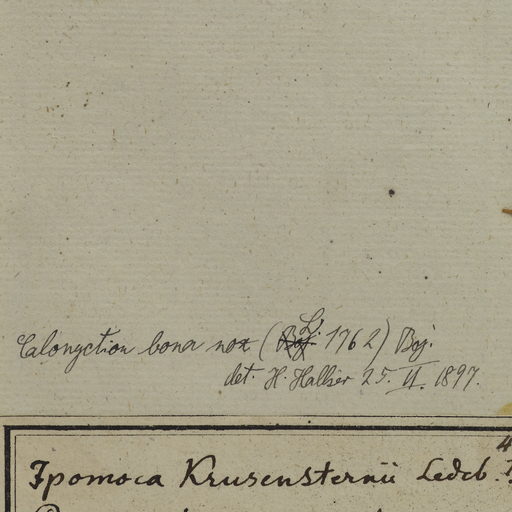 Calonyction bona nox (L. 1762) Boj.
det. H. Hallier 25. VI. 1897.
Ipomoea Krusensternii Ledeb.